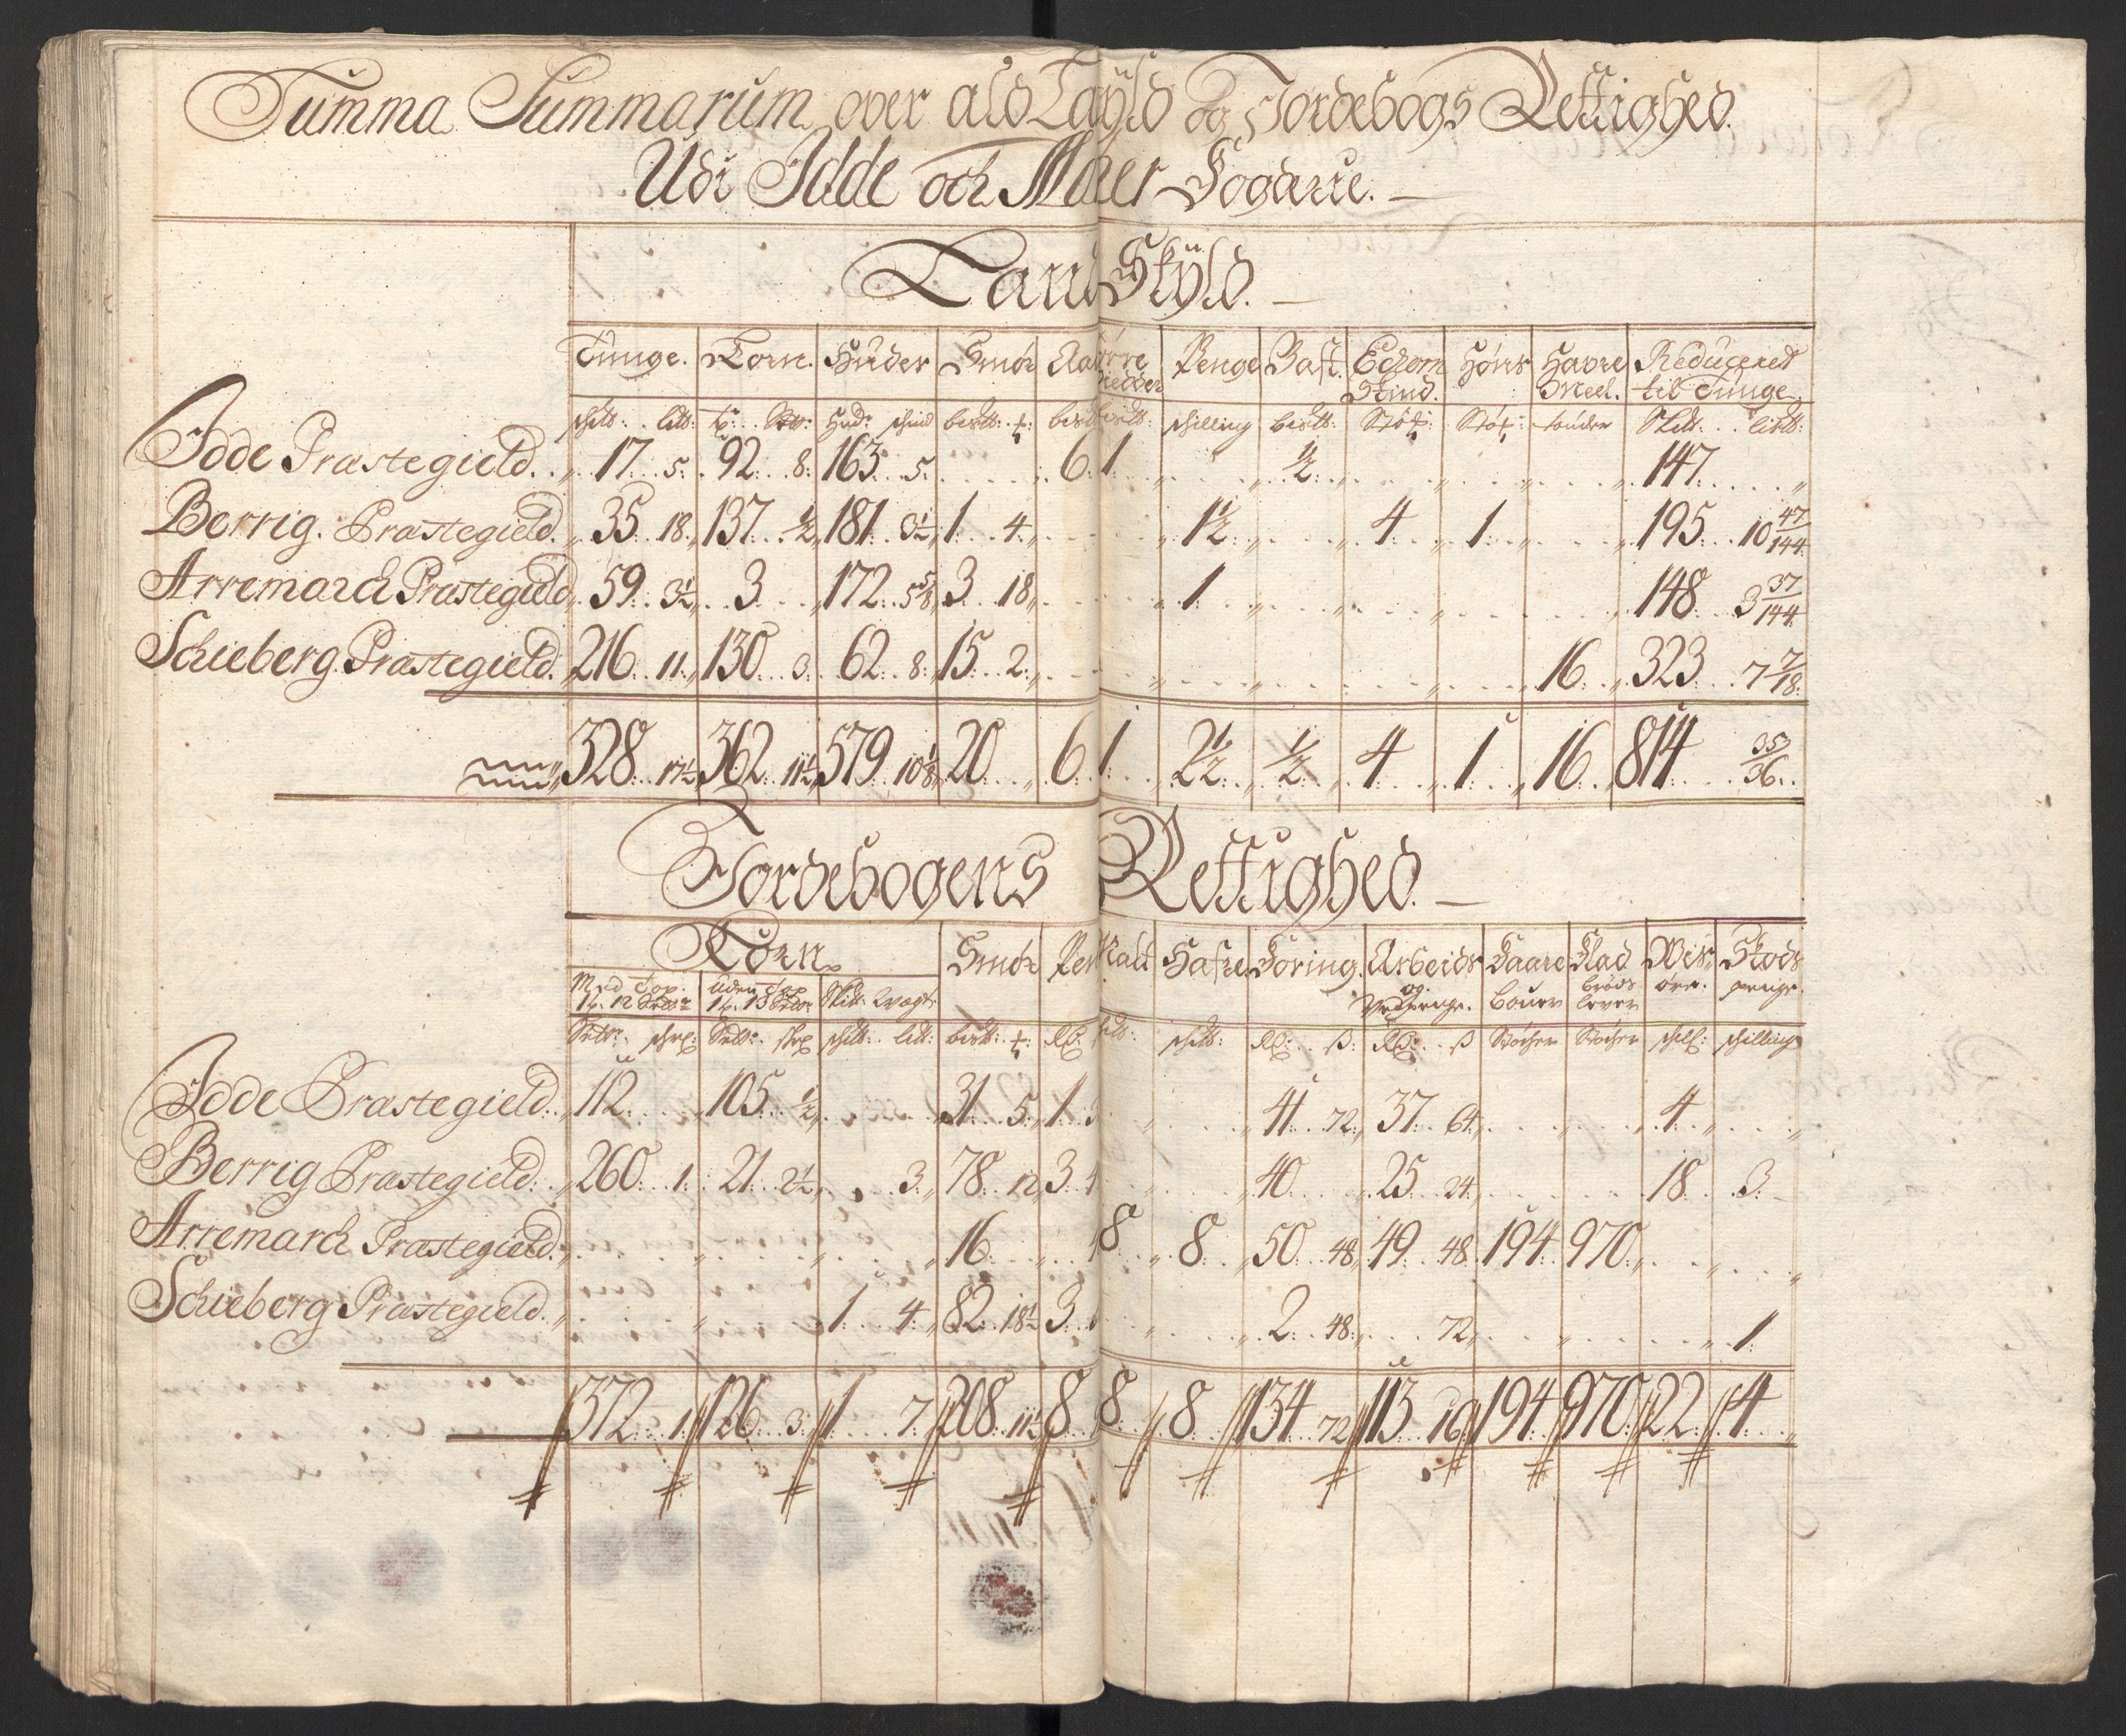 Summa Summarum over ald Layld og Jordebogs Rettighed
Udi Idde och Marer Fogderie.
Land Skÿld.
Tunge. Korn. Huder Smör Penge Bast. Höns Havre Meel. Reduceret til Tunge
schilling tönder
Idde Præstegield. 17 5 92 8 163 5 6 1 ½ 147
Berrig Præstegield. 35 18 137 ½ 181 3½ 1 4 1½ 4 1 195 10 47/144
Arremarch Præstegield 59 3½ 3 172 5 5/8 3 18 1 148 3 37/144
Schieberg Præstegield. 216 11 130 3 62 8 15 2 16 323 7 7/18
328 17½ 362 11½ 579 10 1/8 20 6 1 2½ ½ 4 1 16 814 35/36
Jordebogens Rettighed.
Korn Smör Malt Hafre Föring Arbeids og penge. Staar Bouer Flad bröds lever Skods penge
Med Top 1 t. 12 Uden Top 1 t. 13 wegt
schilling
Idde Præstegield. 112 105 ½ 31 5 1 41 72 37 64 4
Berrig Præstegield. 260 1 21 2½ 3 78 12 3 40 25 24 18 3
Arremarch Præstegield. 16 8 8 50 48 49 48 194 970
Schieberg Præstegield. 1 4 82 18½ 3 2 48 72 1
372 1 126 3 1 7 208 11½ 8 8 8 134 72 113 16 194 970 22 4